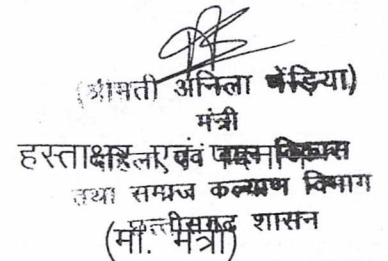 (श्रीमती अनिला भेंड़िया)
मंत्री
हस्ताक्षर एवं पदनाम
महिला एवं बाल विकास
तथा समाज कल्याण विभाग
छत्तीसगढ़ शासन
(मा. मंत्री)